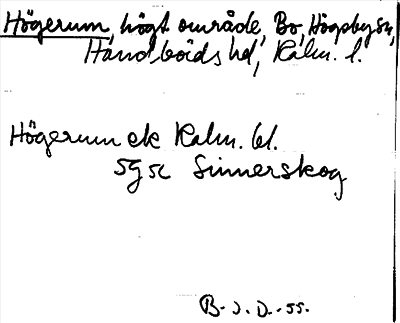 Högerum, högt område, Bo, Högsby sn,
Handbörds hd, Kalm. l.
Högerum ek Kalm. bl.
5g sc Sinnerskog
B. J. D. -55.